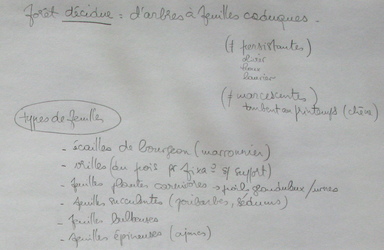 forêt décidue = d'arbres à feuilles caduques.
(≠ persistantes)
houx
laurier
(≠ marcescentes)
tombent au printemps (chêne)
types de feuilles
- écailles de bourgeon (marronnier)
- vrilles (du pois pr fixa° et support)
- feuilles plantes carnivores → poils glandulaux/urnes
- feuilles succulentes (joubarbes, sédums)
- feuilles bulbeuses
- feuilles épineuses (ajoncs)